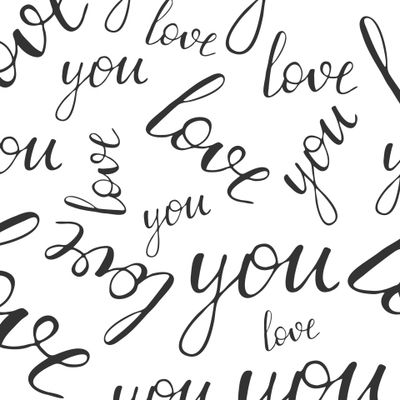 love
love
you
love
you
love
you
love
you
love
you
love
love
you
you